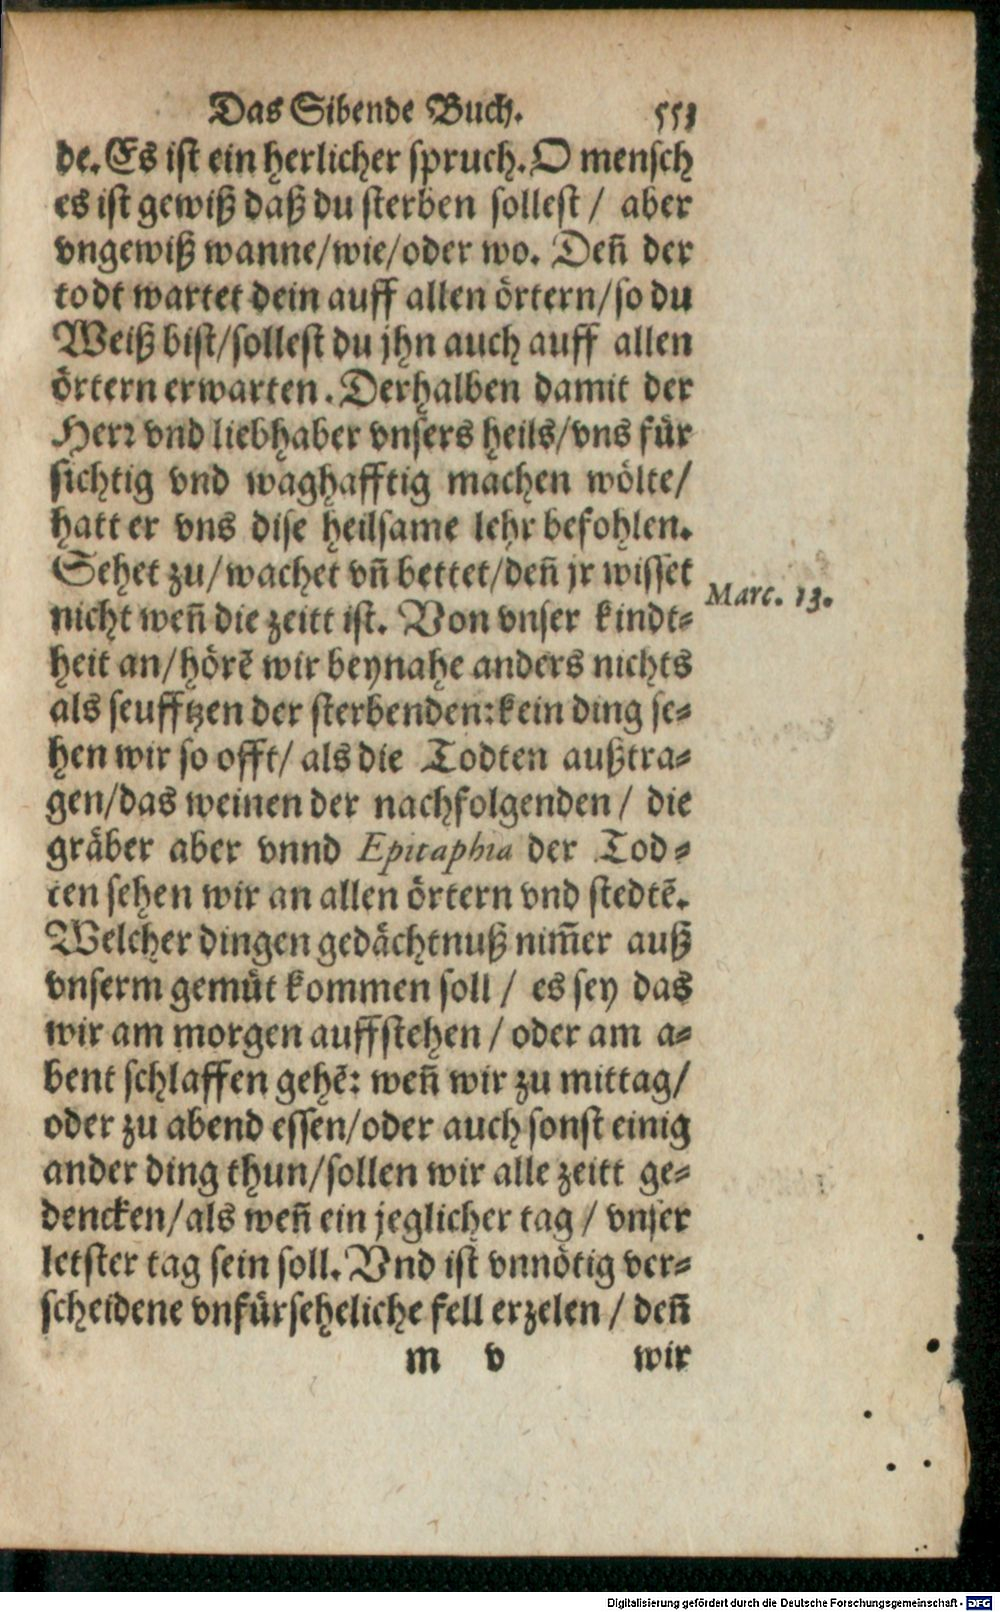 Das Sibende Buch. 553
de. Es ist ein herlicher spruch. O mensch
es ist gewiß daß du sterben sollest / aber
vngewiß wanne/wie/oder wo. Deñ der
todt wartet dein auff allen örtern/so du
Weiß bist/sollest du jhn auch auff allen
örtern erwarten. Derhalben damit der
Herr vnd liebhaber vnsers heils/vns für
sichtig vnd waghafftig machen wölte/
hatt er vns dise heilsame lehr befohlen.
Sehet zu/wachet vñ bettet/deñ jr wisset
Marc. 13.
nicht weñ die zeitt ist. Von vnser kindt-
heit an/hörẽ wir beynahe anders nichts
als seufftzen der sterbenden:kein ding se-
hen wir so offt/ als die Todten außtra-
gen/das weinen der nachfolgenden / die
gräber aber vnnd Epitaphia der Tod-
ten sehen wir an allen örtern vnd stedtẽ.
Welcher dingen gedächtnuß nim̃er auß
vnserm gemüt kommen soll / es sey das
wir am morgen auffstehen / oder am a-
bent schlaffen gehẽ: weñ wir zu mittag/
oder zu abend essen/oder auch sonst einig
ander ding thun/sollen wir alle zeitt ge-
dencken/als weñ ein jeglicher tag / vnser
letster tag sein soll. Vnd ist vnnötig ver-
scheidene vnfürseheliche fell erzelen / deñ
m v wir
Digitalisierung gefördert durch die Deutsche Forschungsgemeinschaft - DFG